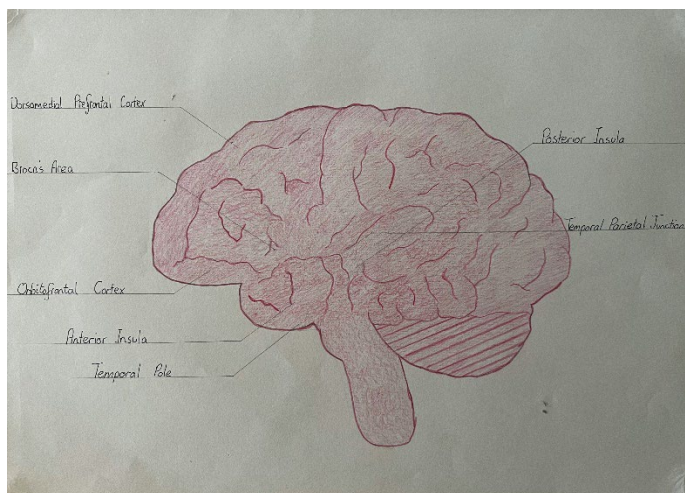 Dorsomedial Prefrontal Cortex
Broca's Area
Orbitofrontal Cortex
Anterior Insula
Temporal Pole
Posterior Insula
Temporal Parietal Junction